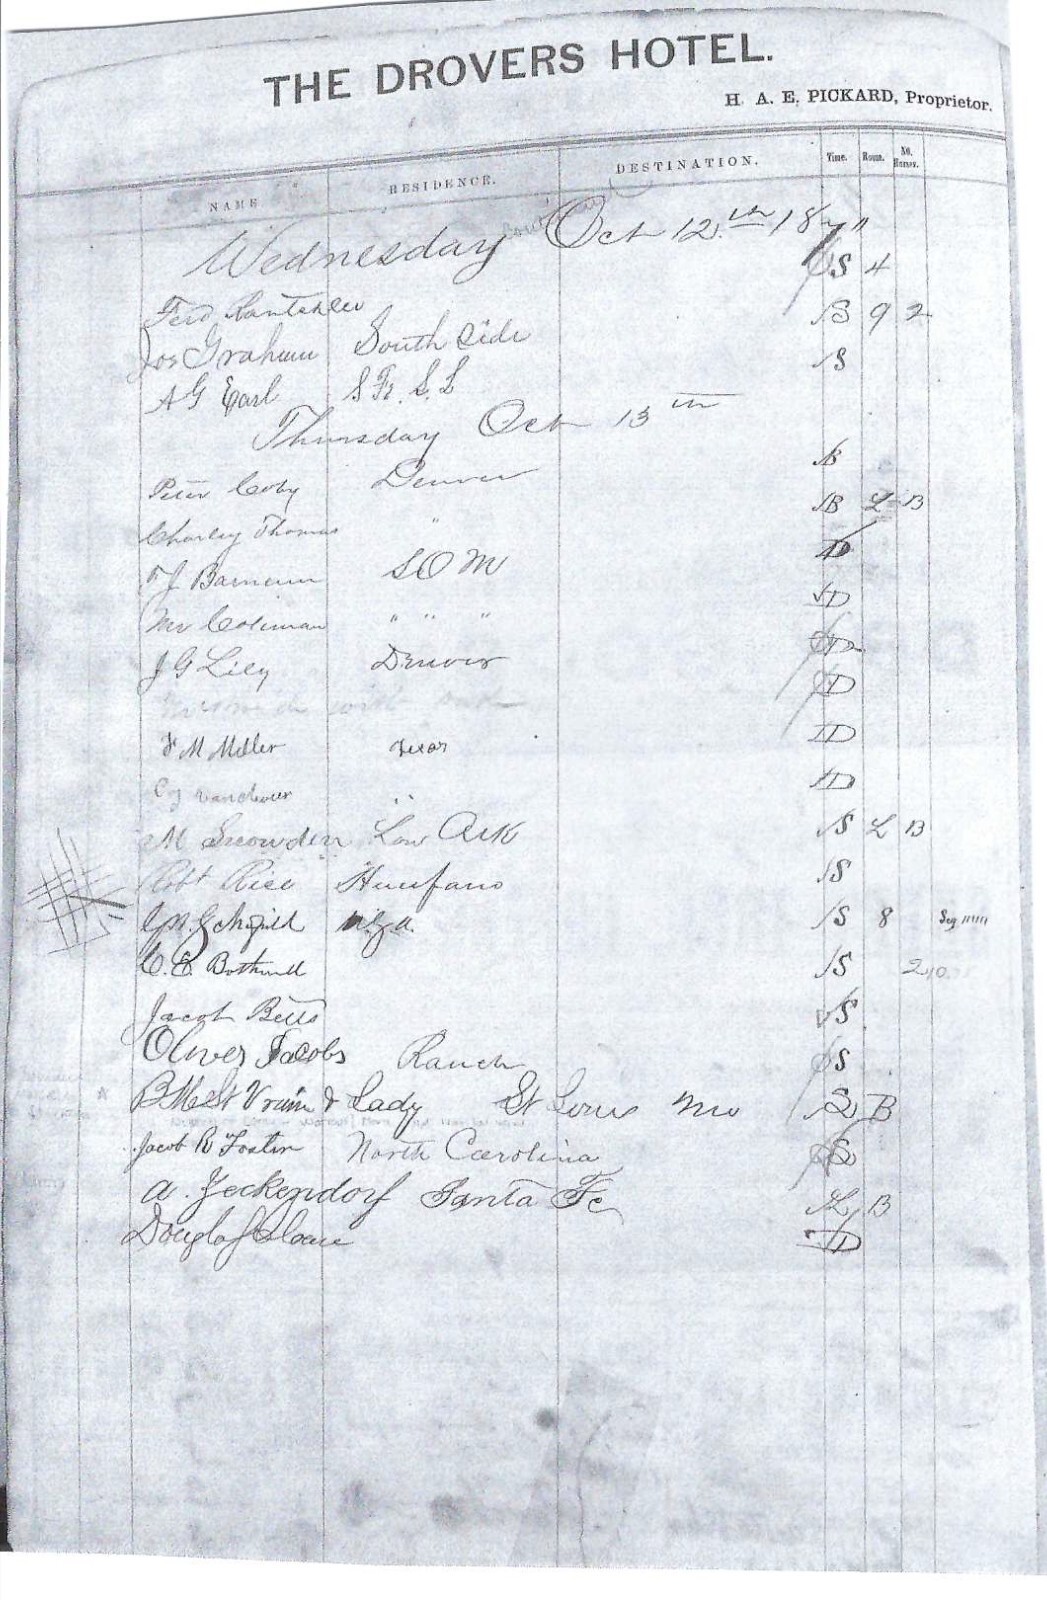 THE DROVERS HOTEL.
H. A. E. PICKARD, Proprietor.
NAME RESIDENCE. DESTINATION. Time. Room. No. Horses.
Wednesday Oct 12th 187"
S 4
Ferd
B 9 2
Jos Graham South Side
S
A G Earl S Fr. S. S
Thursday Oct 13th
B
Peter Coby Denver
B L B
Charley Thomas "
D
T J Barnum S O M
D
Mr Coleman " " "
D
J G Lily Denver
D
with
D
F M Miller Texas
D
Cy "
M Snowden Low Ark S L B
Robt Rice Huerfano S
S 8
C. E. Bothwell S 2
Jacob Betts S
Oliver Jacobs Ranch S
B M St Vrain & Lady St Louis Mo S B
Jacob R Foster North Carolina S
A. Zeckendorf Santa Fe L B
Douglas Sloane D